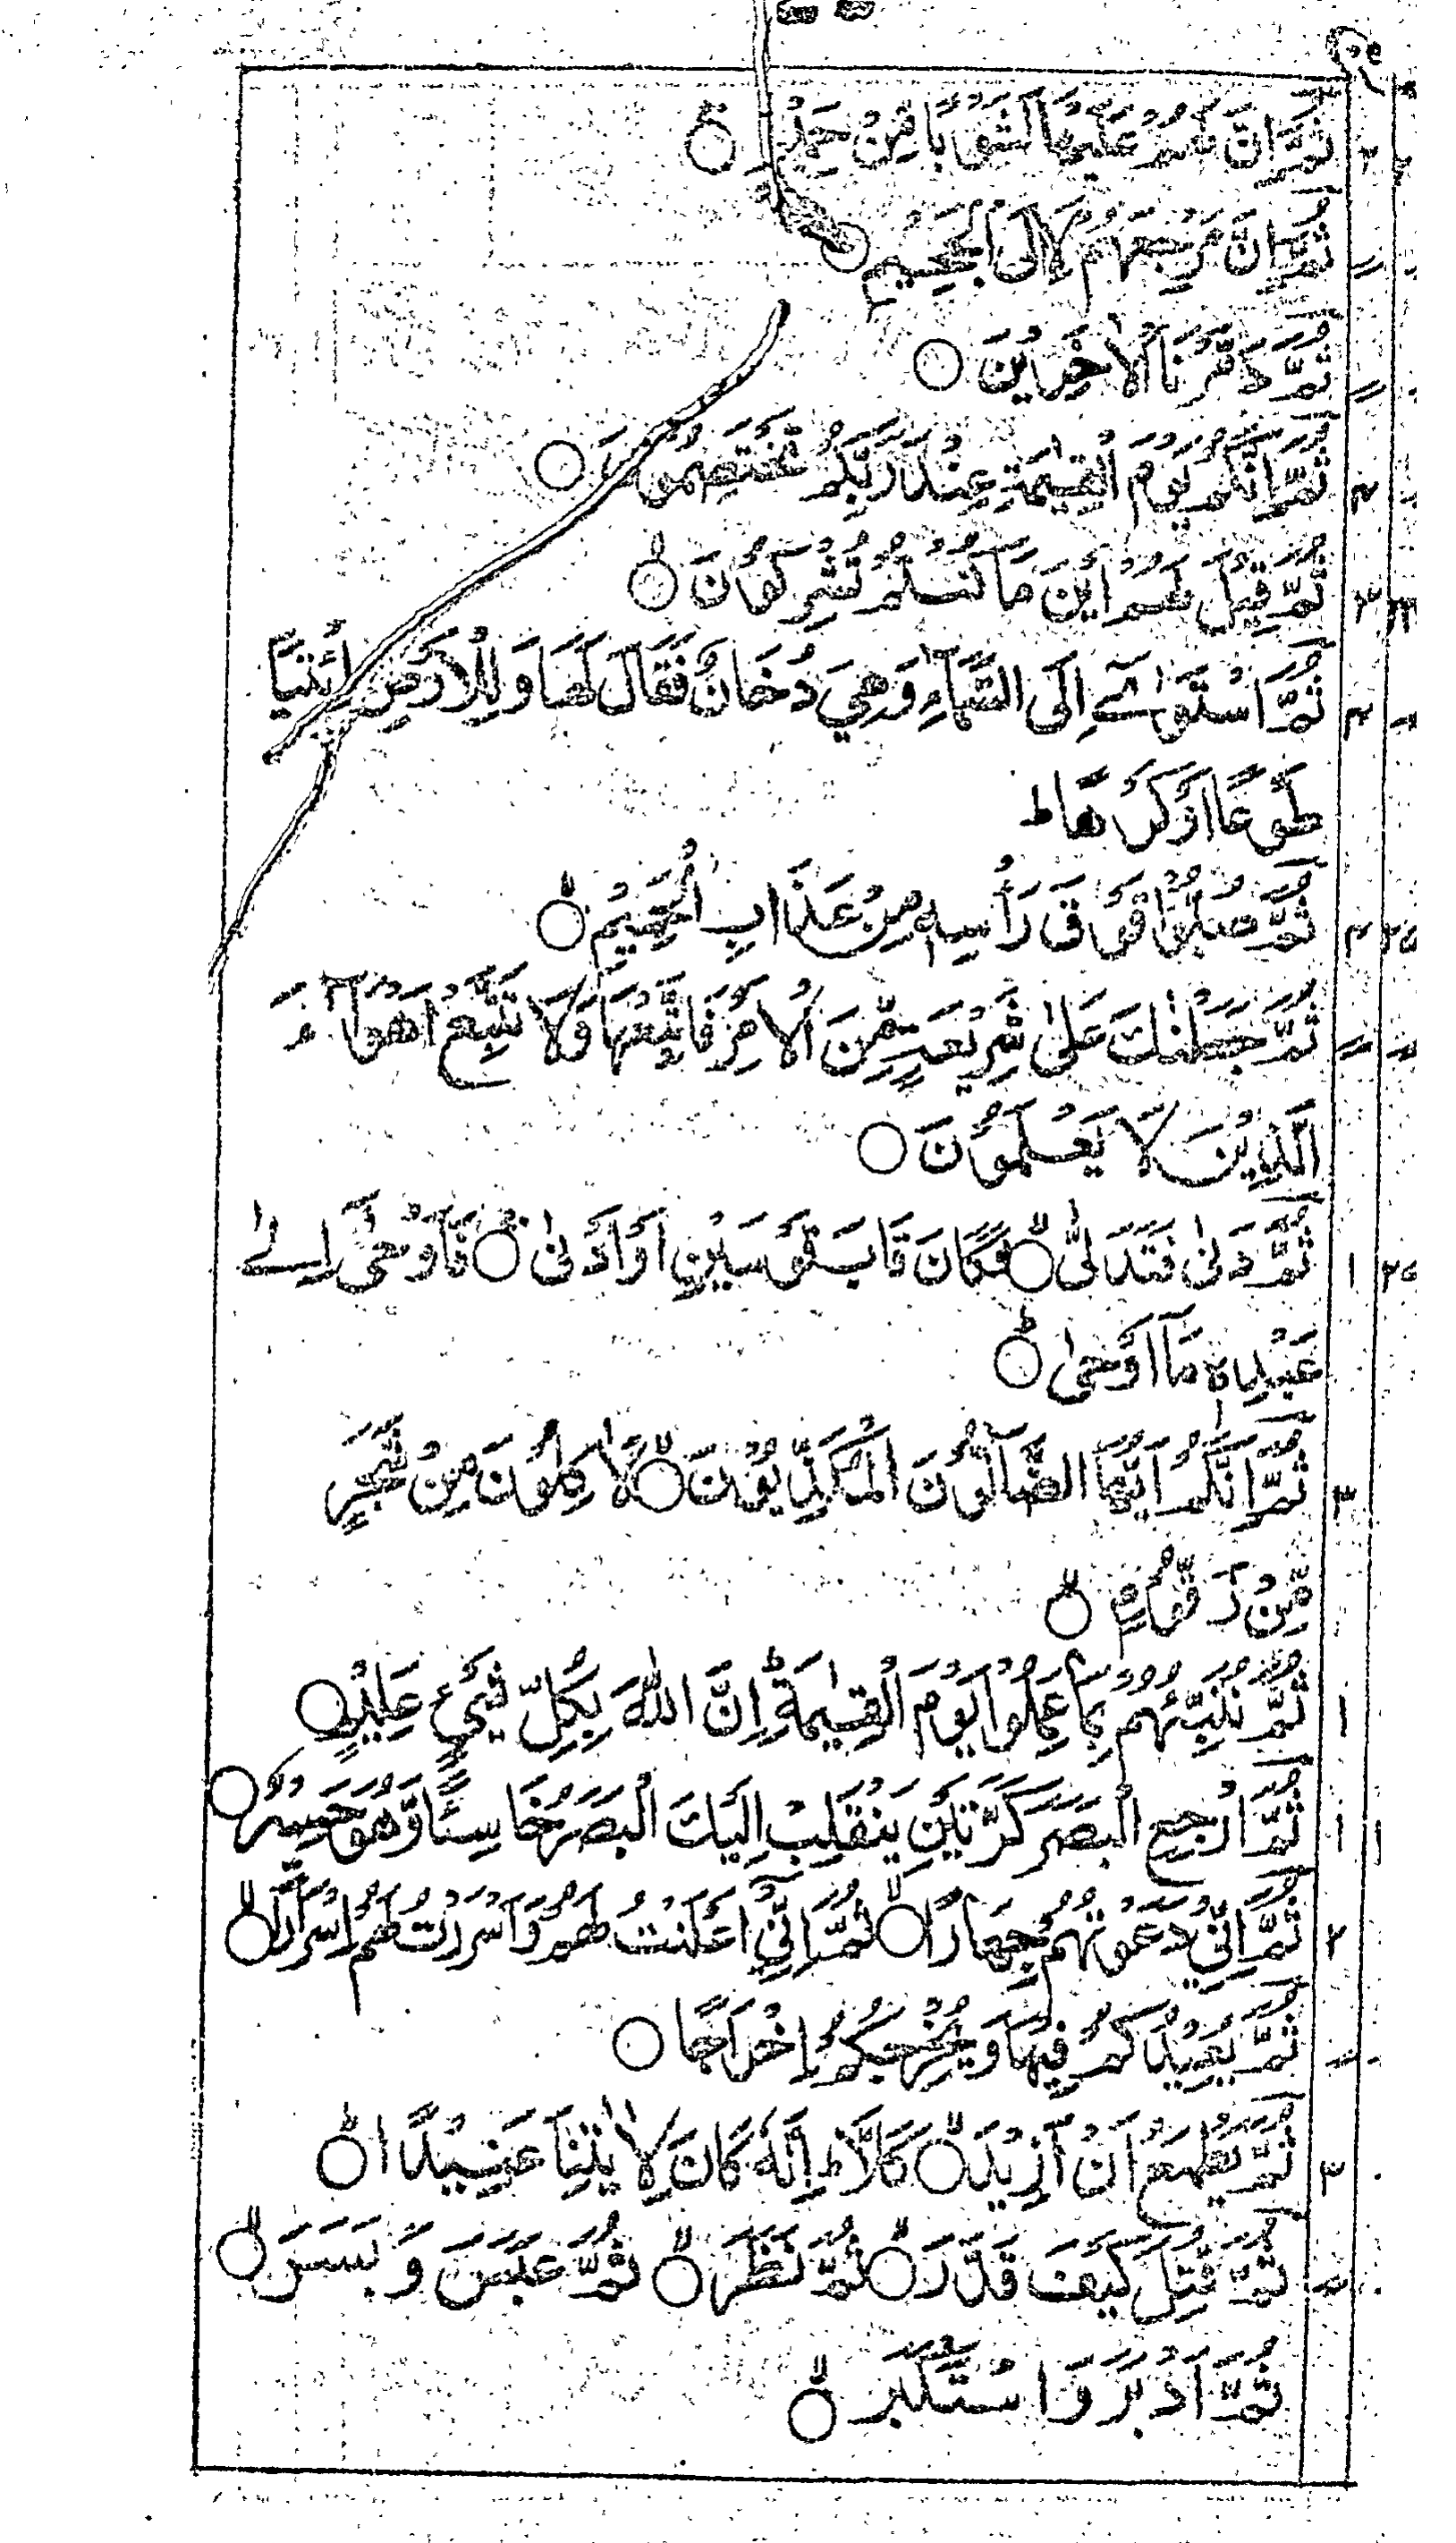 ثُمَّ اِنَّ لَهُمْ عَلَيْهَا لَشَوْبًا مِّنْ حَمِيْمٍ ۚ
ثُمَّ اِنَّ مَرْجِعَهُمْ لَاۡاِلَى الْجَحِيْمِ ○
ثُمَّ دَمَّرْنَا الْاٰخَرِيْنَ ○
ثُمَّ اِنَّكُمْ يَوْمَ الْقِيٰمَةِ عِنْدَ رَبِّكُمْ تَخْتَصِمُوْنَ ○
ثُمَّ قِيْلَ لَهُمْ اَيْنَ مَا كُنْتُمْ تُشْرِكُوْنَ ○ۙ
ثُمَّ اسْتَوٰۤے اِلَى السَّمَآءِ وَهِيَ دُخَانٌ فَقَالَ لَهَا وَلِلْاَرْضِ ائْتِيَا
طَوْعًا اَوْ كَرْهًا ؕ
ثُمَّ صُبُّوْا فَوْقَ رَأْسِهٖ مِنْ عَذَابِ الْحَمِيْمِ ○ؕ
ثُمَّ جَعَلْنٰكَ عَلٰى شَرِيْعَةٍ مِّنَ الْاَمْرِ فَاتَّبِعْهَا وَلَا تَتَّبِعْ اَهْوَآءَ
الَّذِيْنَ لَا يَعْلَمُوْنَ ○
ثُمَّ دَنٰى فَتَدَلّٰى ○ۙ فَكَانَ قَابَ قَوْسَيْنِ اَوْ اَدْنٰى ○ۚ فَاَوْحٰى اِلٰے
عَبْدِهٖ مَاۤ اَوْحٰى ○ؕ
ثُمَّ اِنَّكُمْ اَيُّهَا الضَّآلُّوْنَ الْمُكَذِّبُوْنَ ○ۙ لَاٰكِلُوْنَ مِنْ شَجَرٍ
مِّنْ زَقُّوْمٍ ○ۙ
ثُمَّ يُنَبِّئُهُمْ بِمَا عَمِلُوْا يَوْمَ الْقِيٰمَةِ ؕ اِنَّ اللّٰهَ بِكُلِّ شَيْءٍ عَلِيْمٌ ○
ثُمَّ ارْجِعِ الْبَصَرَ كَرَّتَيْنِ يَنْقَلِبْ اِلَيْكَ الْبَصَرُ خَاسِئًا وَّهُوَ حَسِيْرٌ ○
ثُمَّ اِنِّيْ دَعَوْتُهُمْ جِهَارًا ○ۙ ثُمَّ اِنِّيْۤ اَعْلَنْتُ لَهُمْ وَاَسْرَرْتُ لَهُمْ اِسْرَارًا ○ۙ
ثُمَّ يُعِيْدُكُمْ فِيْهَا وَيُخْرِجُكُمْ اِخْرَاجًا ○
ثُمَّ يَطْمَعُ اَنْ اَزِيْدَ ○ۙ كَلَّا ؕ اِنَّهٗ كَانَ لِاٰيٰتِنَا عَنِيْدًا ○ؕ
ثُمَّ قُتِلَ كَيْفَ قَدَّرَ ○ۙ ثُمَّ نَظَرَ ○ۙ ثُمَّ عَبَسَ وَ بَسَرَ ○ۙ
ثُمَّ اَدْبَرَ وَاسْتَكْبَرَ ○ۙ